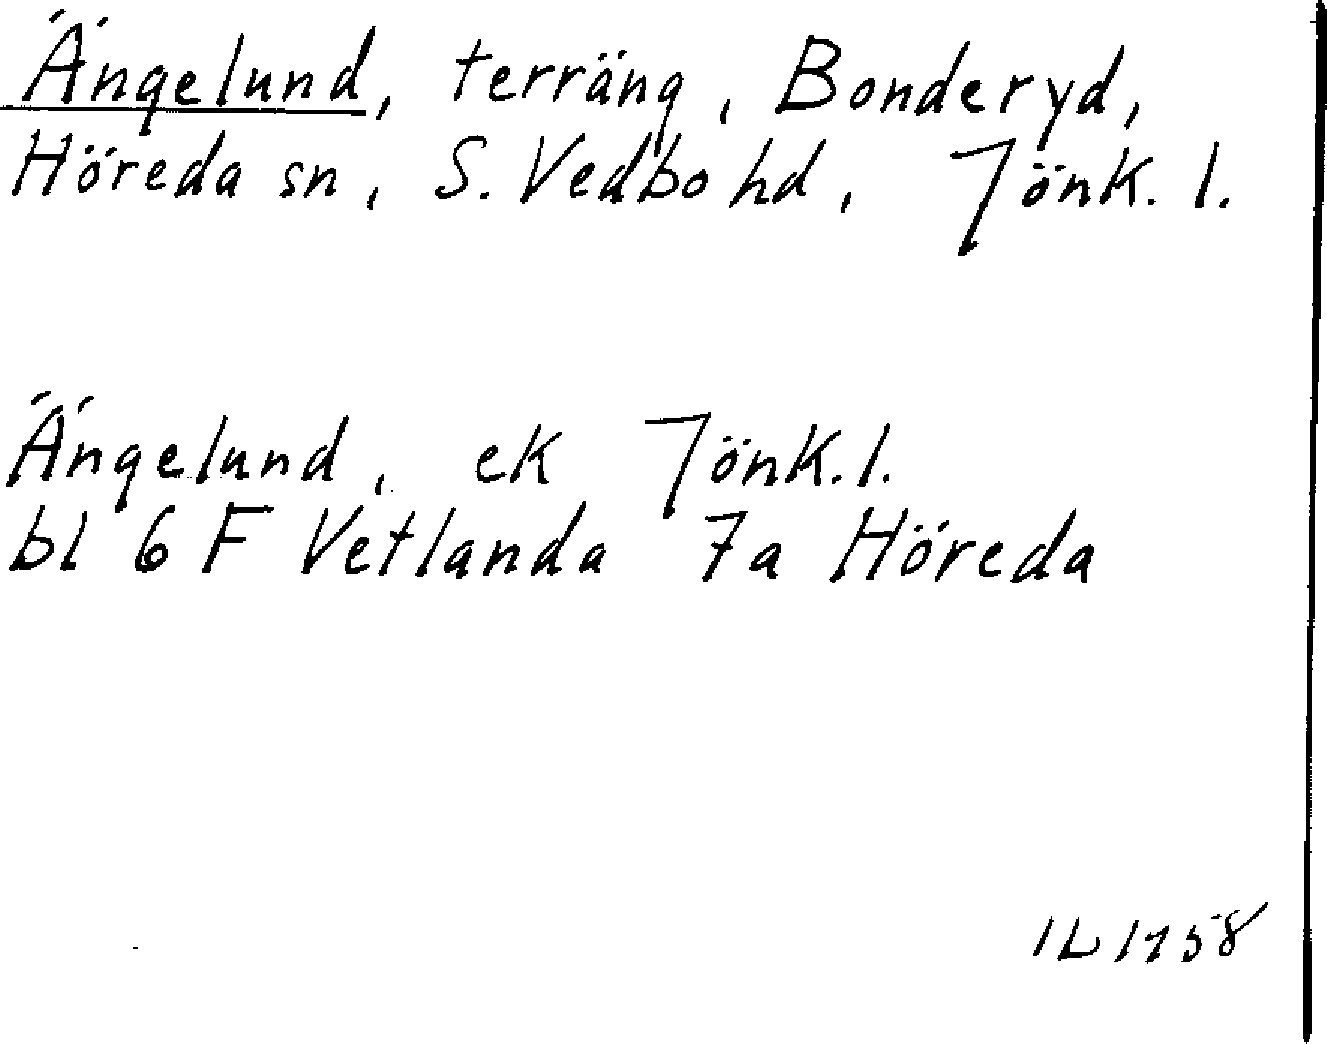 Ängelund, terräng, Bonderyd,
Höreda sn, S. Vedbo hd, Jönk. l.
Ängelund, ek Jönk. l.
bl 6 F Vetlanda 7a Höreda